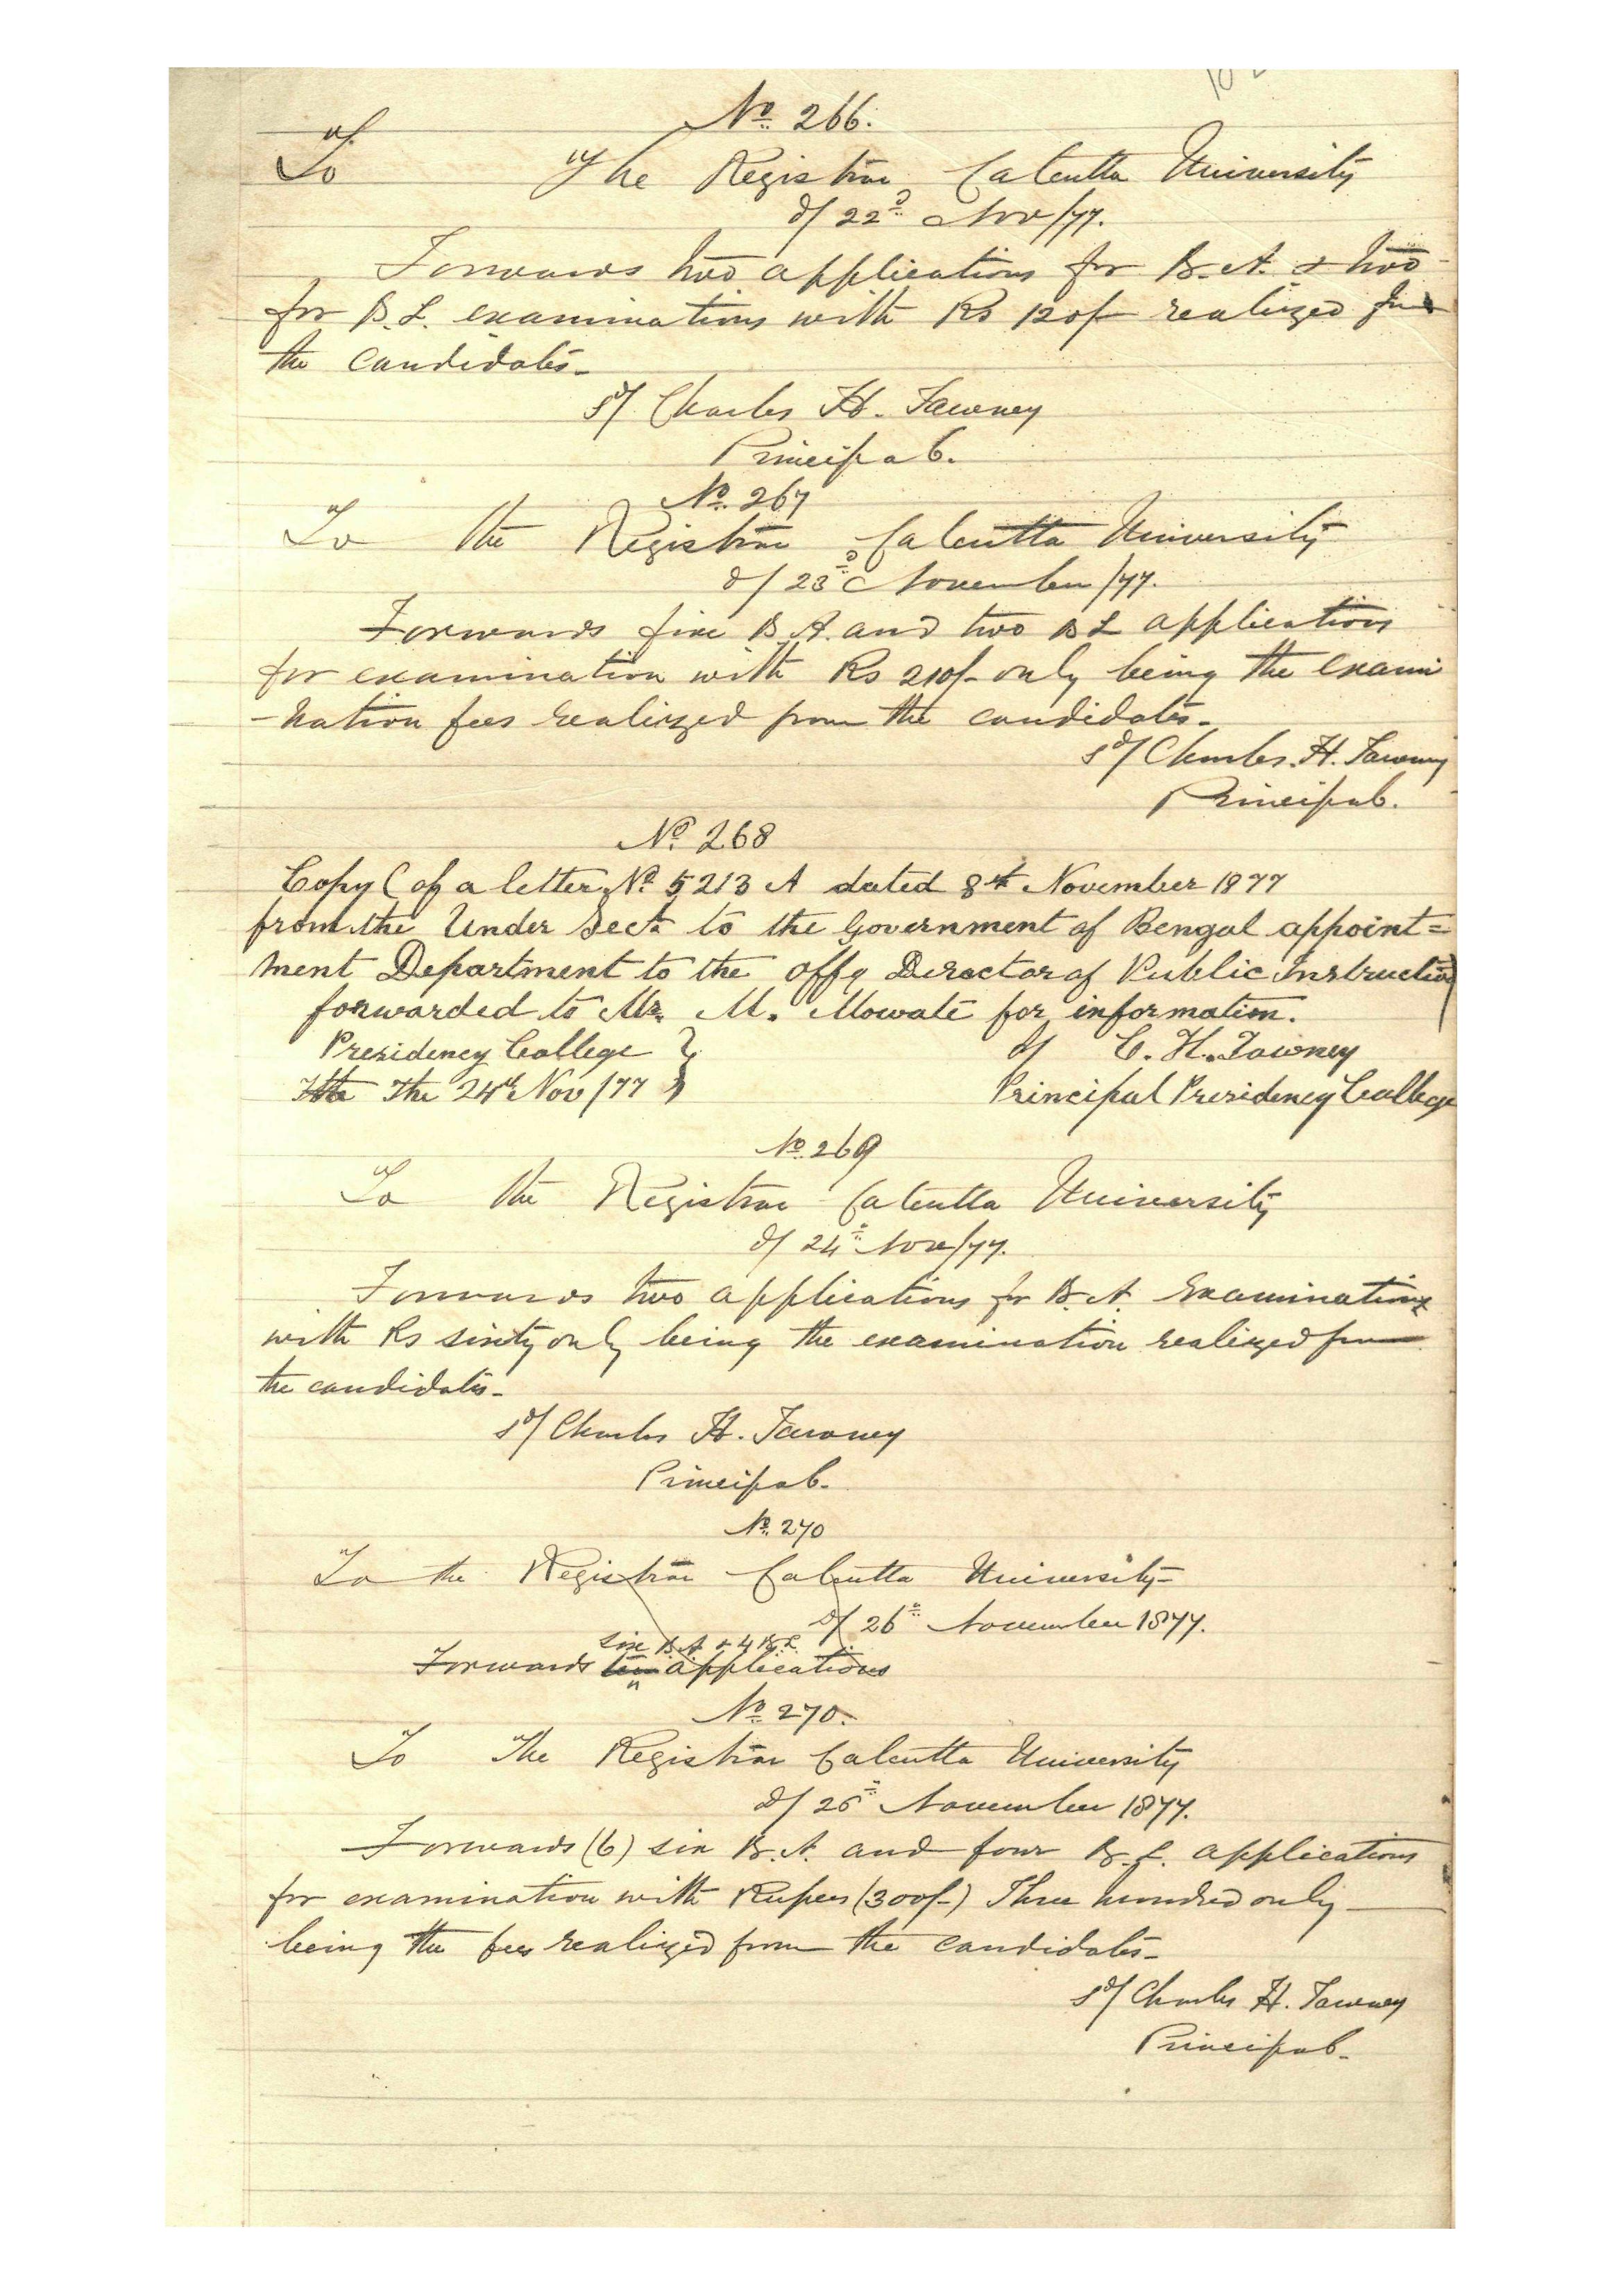 No. 266.
To The Registrar, Calcutta University
d/ 22d Nov/77.
Forwards two applications for B.A. & two
for B.L. examinations with Rs 120/- realized from
the candidates.
sd/ Charles H. Tawney
Principal.
No. 267
To the Registrar Calcutta University
d/ 23d November/77.
Forwards five B.A. and two B L applications
for examination with Rs 210/- only being the exami
-nation fees realized from the candidates.
sd/ Charles. H. Tawney
Principal.
No. 268
Copy (of a letter No. 5213 A dated 8th November 1877
from the Under Sect. to the Government of Bengal appoint=
ment Department to the offg Deroctor of Public Instruction)
forwarded to Mr. M. Mowate for information.
Presidency College }
The 24th Nov/77 }
d/ C. H. Tawney
Principal Presidency College
No. 269
To the Registrar Calcutta University
d/ 24th Nov/77.
Forwards two applications for B.A. Examinations
with Rs sixty only being the examination realized from
the candidates.
sd/ Charles H. Tawney
Principal.
No. 270
To the Registrar Calcutta University
d/ 26th November 1877.
six B.A & 4 B.L
Forwards ten applications
No. 270.
To The Registrar Calcutta University
d/ 26th November 1877.
Forwards (6) six B.A. and four B.L. applications
for examination with Rupees (300/-) Three hundred only
being the fees realized from the candidates.
sd/ Charles H. Tawney
Principal.